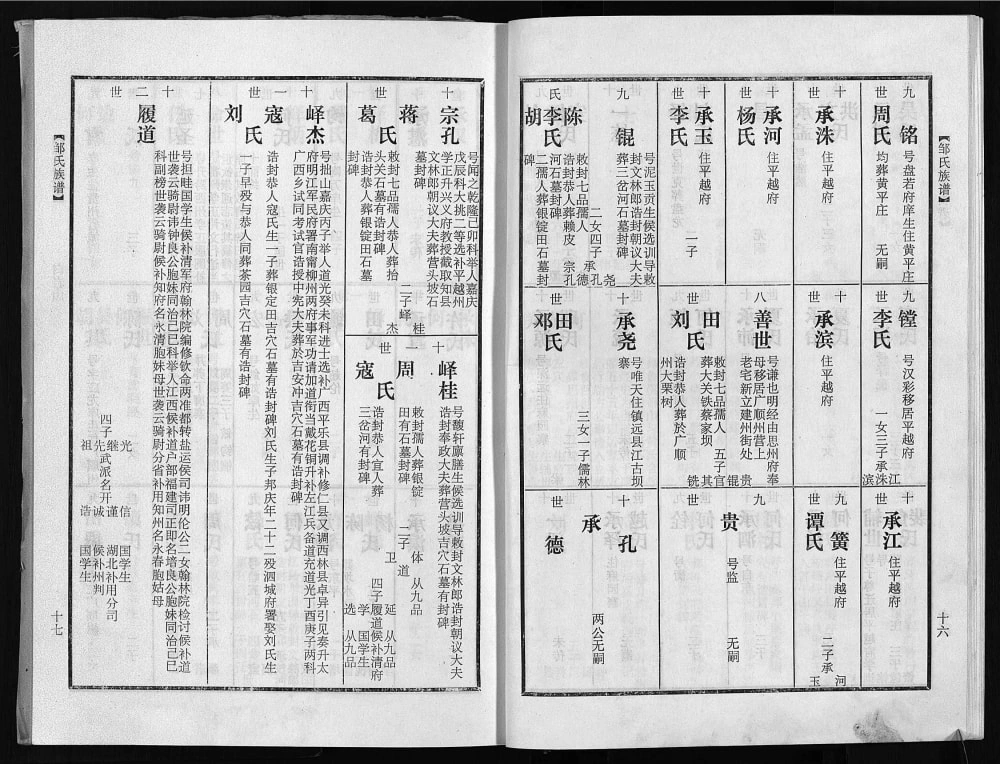 【邹氏族谱】
十六
九世
铭
号盘若府庠生住黄平庄
周氏
均葬黄平庄
无嗣
十世
承洙
住平越府
十世
承河
住平越府
杨氏
十世
承玉
住平越府
李氏
二子
九世
锟
号泥玉贡生候选训导敕
封文林郎诰封朝议大夫
葬三岔河石墓封碑
二女四子
承
尧
孔
德
宗孔
陈氏
敕封七品孺人
诰封恭人葬赖皮
河石墓封碑
李氏
胡氏
二孺人葬银锭田石墓封
碑
九世
镗
号汉彩移居平越府
李氏
一女三子承
江
洙
滨
十世
承滨
住平越府
八世
善世
号谦也明经由思州府奉
母移居广顺州营上
老宅新立建州街处
田氏
敕封七品孺人
葬大关铁蔡家坝
五子
官
贵
锟
其
铣
刘氏
诰封恭人葬於广顺
州大栗树
十世
承尧
号唯天住镇远县江古坝
寨
三女一子儒林
田氏
邓氏
十世
承江
住平越府
九世
簧
住平越府
谭氏
二子承
河
玉
九世
贵
号监
无嗣
十世
承孔
承德
两公无嗣
十世
宗孔
号闻之乾隆己卯科举人嘉庆
戊辰科大挑二等选补平越州
学正升兴义府教授截取知县
文林郎朝议大夫葬营头坡石
墓封碑
二子峄
桂
杰
蒋氏
敕封七品孺人恭人葬抬
头关石墓有诰封碑
葛氏
诰封恭人葬银锭田石墓
封碑
十一世
峄桂
号馥轩廪膳生候选训导敕封文林郎诰封朝议大夫
诰封奉政大夫葬营头坡吉穴石墓有封碑
周氏
敕封孺人葬银锭
田有石墓封碑
二子
体
从九品
卫
道
寇氏
诰封恭人宜人葬
三岔河有封碑
四子
延
从九品
履道候补清府
学
国学生
选
从九品
十一世
峄杰
号拙山嘉庆丙子举人道光癸未科进士选补广西平乐县调补修仁县又调西林县卓异引见奏升太
府明江军民府署南甯柳州两府事军功请加道衔当戴花铜升补左江兵备道充道光丁酉庚子两科
广西乡试同考试官诰授中宪大夫葬於吉安冲吉穴石墓有诰封碑
寇氏
诰封恭人寇氏生一子葬银定田吉穴石墓有诰封碑刘氏生子邦庆年二十二殁泗城府署娶刘氏生
刘氏
一子早殁与恭人同葬茶园吉穴石墓有诰封碑
十二世
履道
号担畦国学生侯补清军府翰林院编修钦命两准都转盐运侯司讳明伦公二女翰林院检讨候补道
世袭云骑尉讳钟良公胞妹同治己巳科举人江西候补道户部福建司正即名培良公胞妹同治己巳
科副榜世袭云骑尉候补知府名永清胞妹母世袭云骑尉分省补用知州名永春胞姑母
四子
光
信
国学生
继
谨
湖北补用分司
先武派名开
诚
候补州判
祖
诰
国学生
【邹氏族谱】
十七